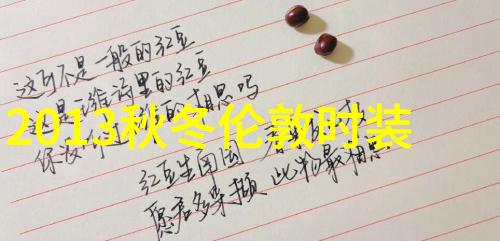 这可不是一般的红豆
这是王维诗里的红豆
的相思吗
2013秋冬伦敦时装
红豆生南国
愿君多采撷 此物最相思